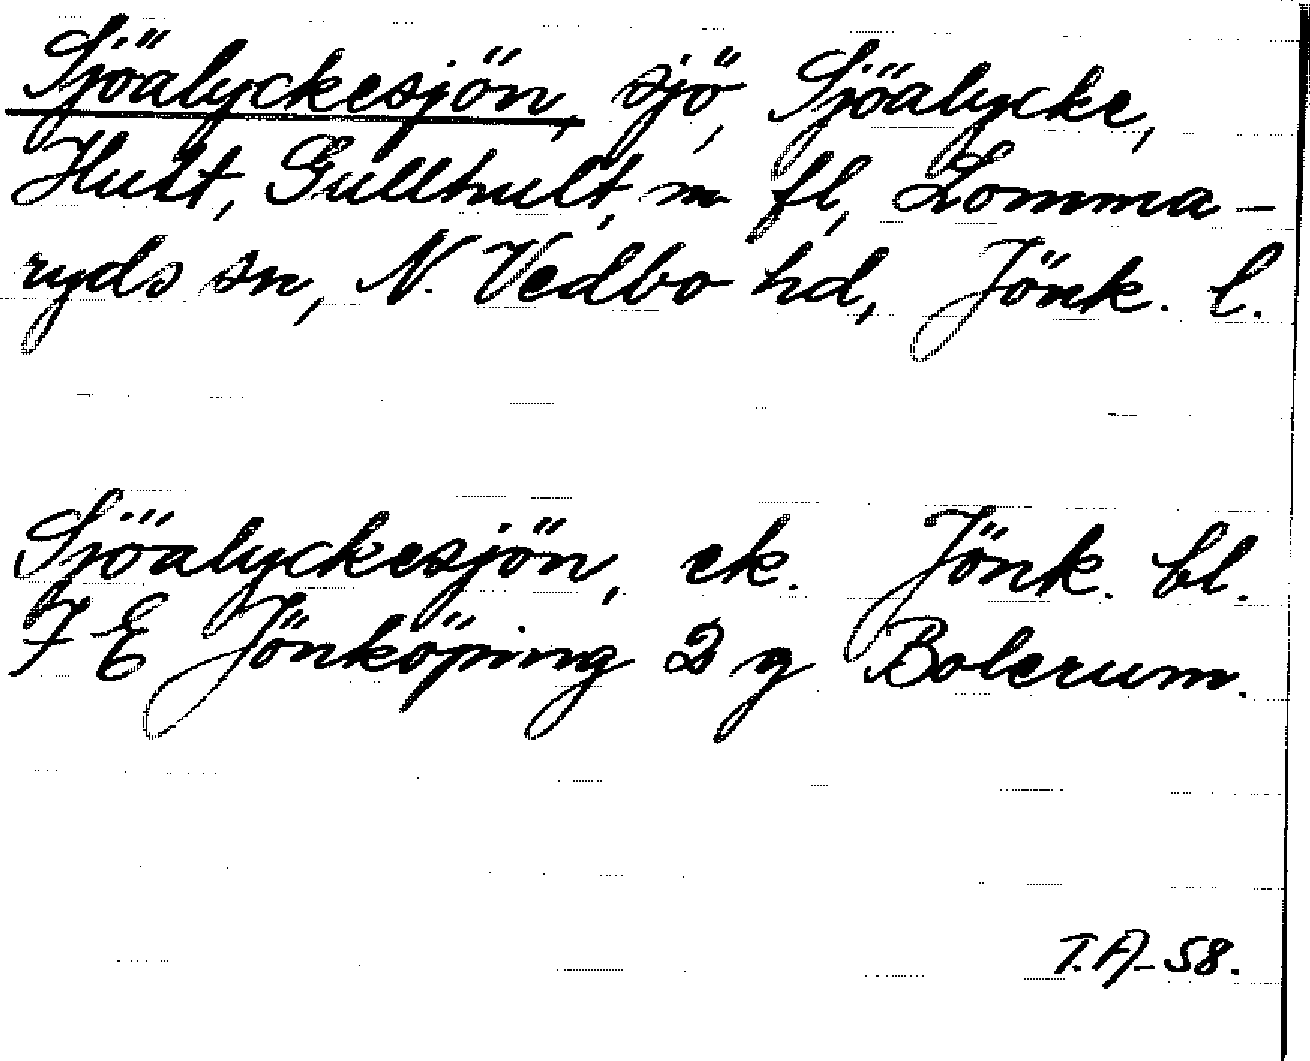 Sjöalyckesjön, sjö, Sjöalycke,
Hult, Gullhult, m fl, Lomma-
ryds sn, N. Vedbo hd, Jönk. l.
Sjöalyckesjön, ek. Jönk. bl.
7 E Jönköping 2 g Bolerum.
T.A-58.